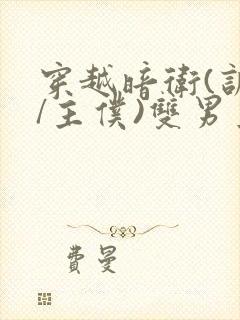 穿越暗衛(
/主僕)雙男
費曼